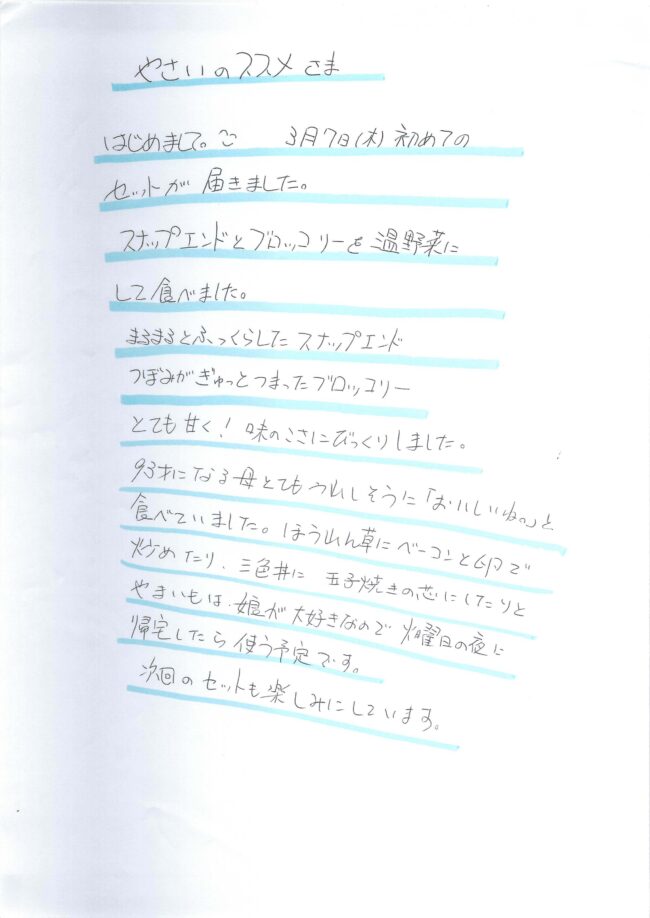 やさいのススメさま
はじめまして。 3月7日(木)初めての
セットが届きました。
スナップエンドとブロッコリーを温野菜に
して食べました。
まるまるとふっくらしたスナップエンド
つぼみがぎゅっとつまったブロッコリー
とても甘く！味のこさにびっくりしました。
93才になる母とてもうれしそうに「おいしいね。」と
食べていました。ほうれん草にベーコンと卵で
炒めたり、三色丼に 玉子焼きの芯にしたりと
やまいもは、娘が大好きなので火曜日の夜に
帰宅したら使う予定です。
次回のセットも楽しみにしています。